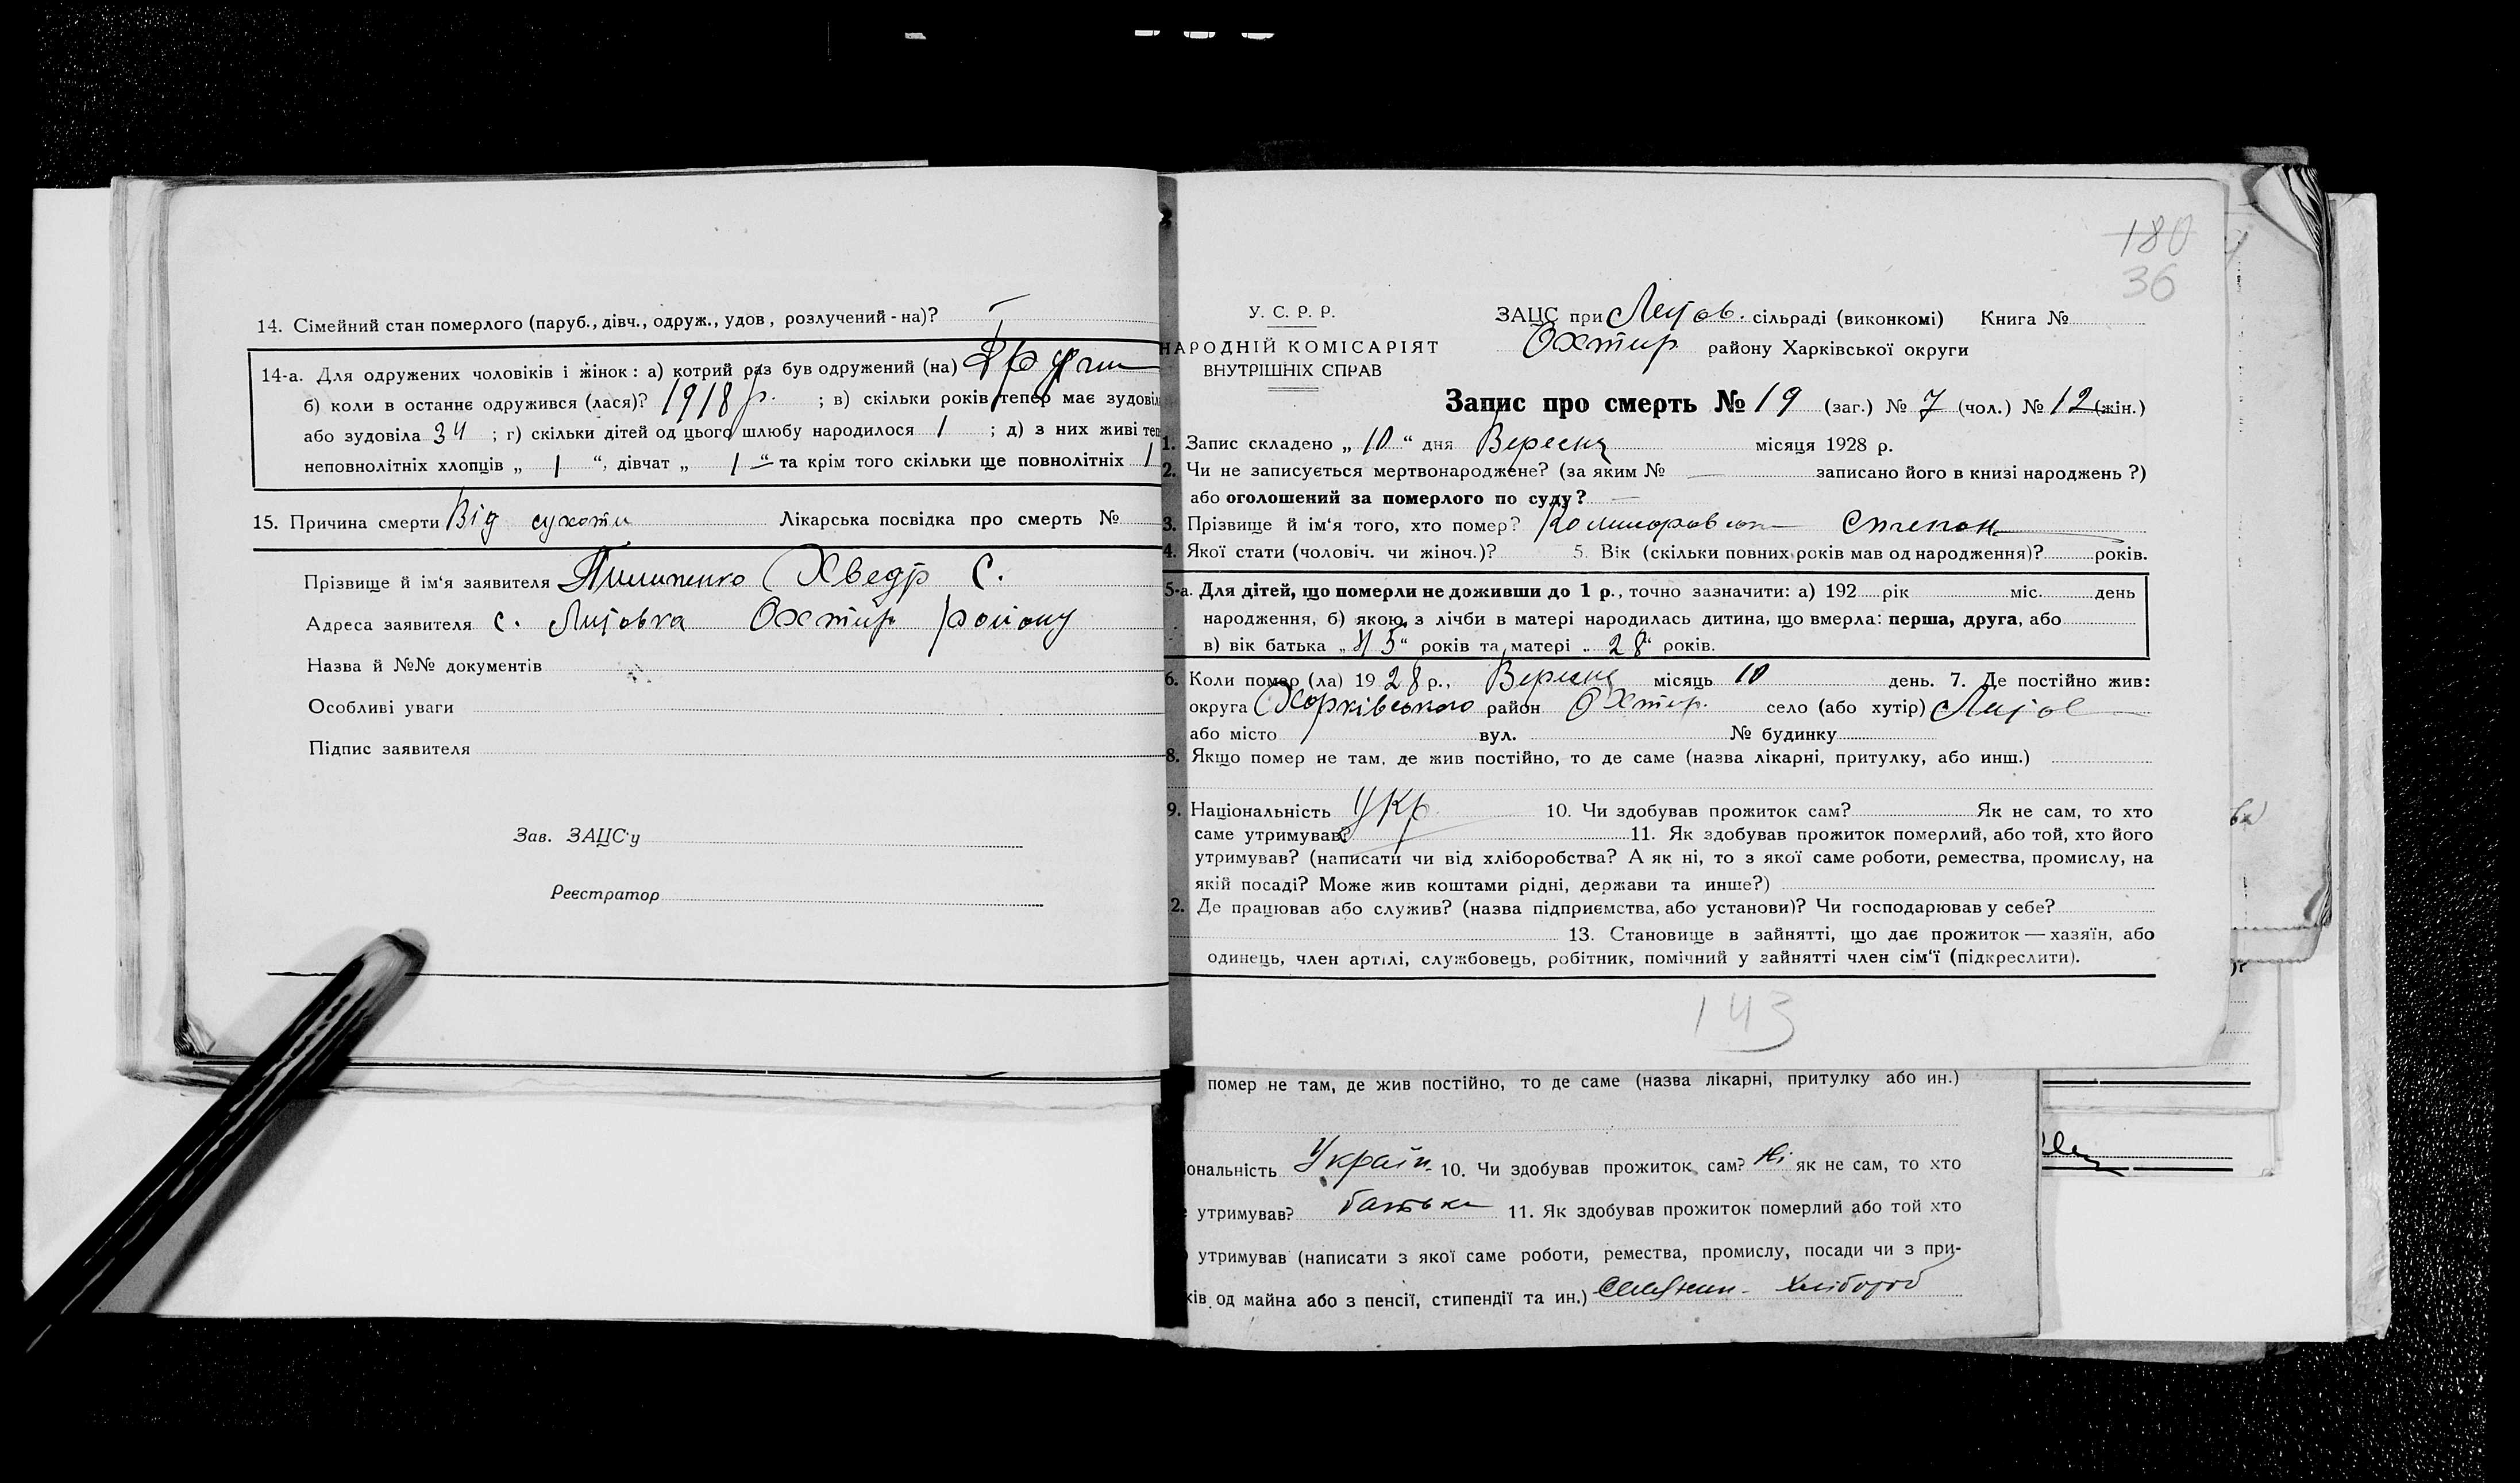 14. Сімейний стан померлого (паруб., дівч., одруж., удов, розлучений-на)? —
14-а. Для одружених чоловіків і жінок: а) котрий раз був одружений (на)
б) коли в останнє одружився (лася)? 1918 р. ; в) скільки років тепер має зудовіл
або зудовіла 34 ; г) скільки дітей од цього шлюбу народилося 1 ; д) з них живі теп
неповнолітніх хлопців „ 1 “, дівчат „ 1 “ та крім того скільки ще повнолітніх 1
15. Причина смерти Від сухоти Лікарська посвідка про смерть №
Прізвище й ім‘я заявителя Пилипенко Хведр С.
Адреса заявителя с. Литовка Охтир району
Назва й №№ документів
Особливі уваги
Підпис заявителя
Зав. ЗАЦС‘у
Реєстратор
180
36
У. С. Р. Р.
НАРОДНІЙ КОМІСАРІЯТ
ВНУТРІШНІХ СПРАВ
ЗАЦС при Литов. сільраді (виконкомі) Книга №
Охтир району Харківської округи
Запис про смерть № 19 (заг.) № 7 (чол.) № 12 (жін.)
1. Запис складено „ 10 “ дня Вересня місяця 1928 р.
2. Чи не записується мертвонароджене? (за яким № — записано його в книзі народжень ?)
або оголошений за померлого по суду? —
3. Прізвище й ім‘я того, хто помер? Степан
4. Якої стати (чоловіч. чи жіноч.)? 5. Вік (скільки повних років мав од народження)? років.
5-а. Для дітей, що померли не доживши до 1 р., точно зазначити: а) 192 рік міс. день
народження, б) якою, з лічби в матері народилась дитина, що вмерла: перша, друга, або
в) вік батька „ 45 “ років та матері „ 28 “ років.
6. Коли помер (ла) 19 28 р., Вересня місяць 10 день. 7. Де постійно жив:
округа Харківського район Охтир. село (або хутір) Литов
або місто вул. № будинку
8. Якщо помер не там, де жив постійно, то де саме (назва лікарні, притулку, або инш.)
9. Національність Укр 10. Чи здобував прожиток сам? Як не сам, то хто
саме утримував? 11. Як здобував прожиток померлий, або той, хто його
утримував? (написати чи від хліборобства? А як ні, то з якої саме роботи, ремества, промислу, на
якій посаді? Може жив коштами рідні, держави та инше?)
2. Де працював або служив? (назва підприємства, або установи)? Чи господарював у себе?
13. Становище в зайнятті, що дає прожиток — хазяїн, або
одинець, член артілі, службовець, робітник, помічний у зайнятті член сім‘ї (підкреслити).
143
помер не там, де жив постійно, то де саме (назва лікарні, притулку або ин.)
іональність Україн. 10. Чи здобував прожиток сам? Ні як не сам, то хто
утримував? батько 11. Як здобував прожиток померлий або той хто
утримував (написати з якої саме роботи, ремества, промислу, посади чи з при-
ків од майна або з пенсії, стипендії та ин.) хлібороб